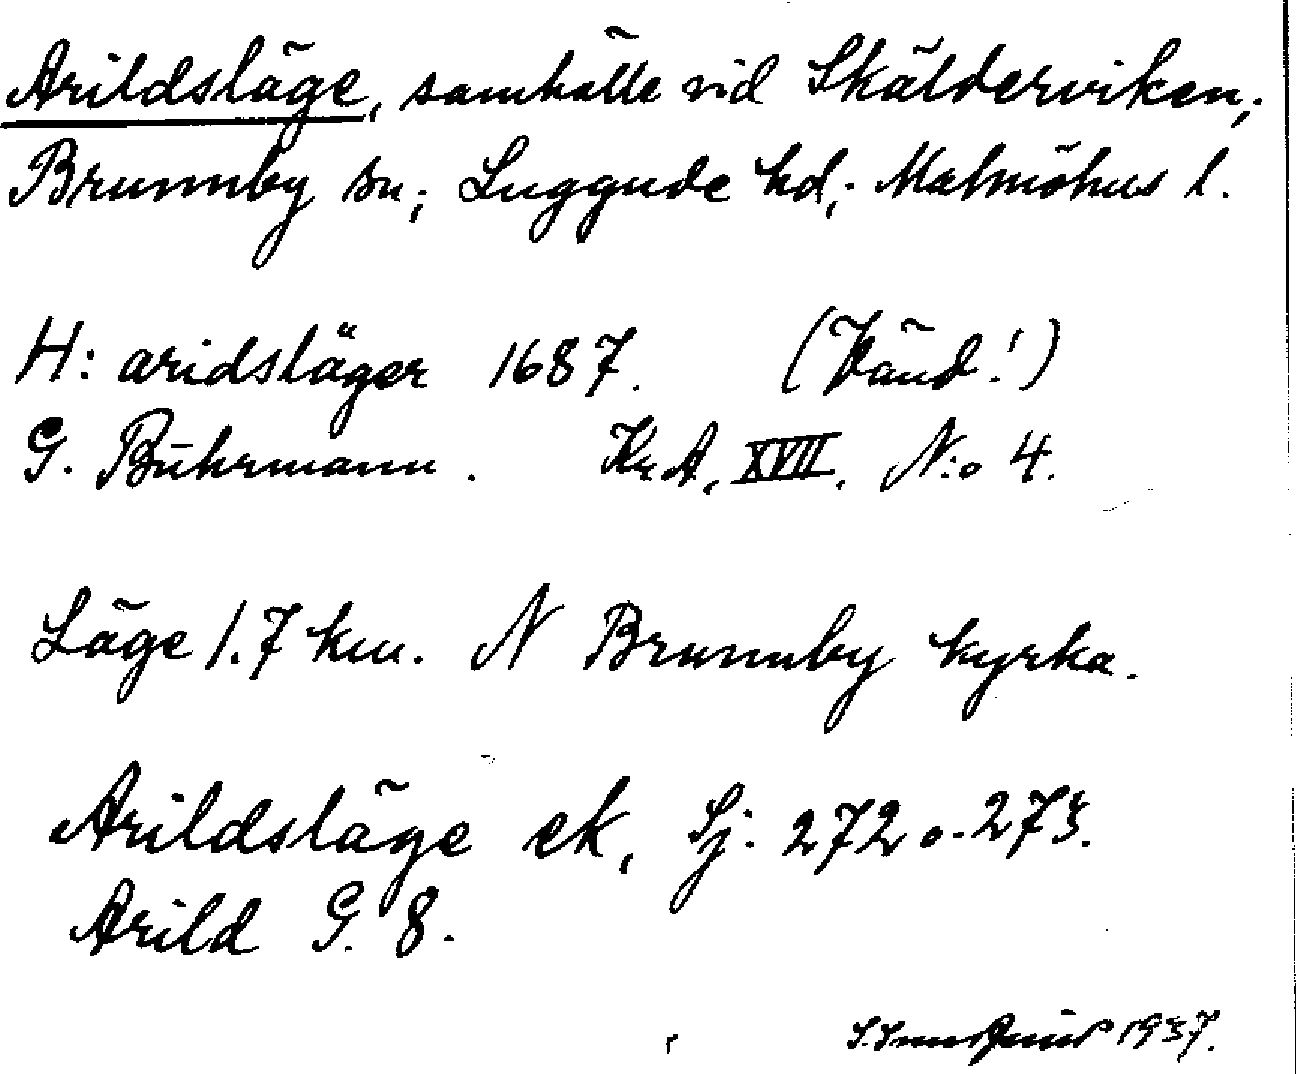 Arildsläge, samhälle vid Skälderviken,
Brunnby sn; Luggude hd; Malmöhus l.
H: aridsläger 1687. (Vänd!)
G. Buhrmann. Kr.A, XVII, N:o 4.
Läge 1.7 km. N Brunnby kyrka.
Arildsläge ek, Sj. 272 o. 273.
Arild G. 8.
1937.